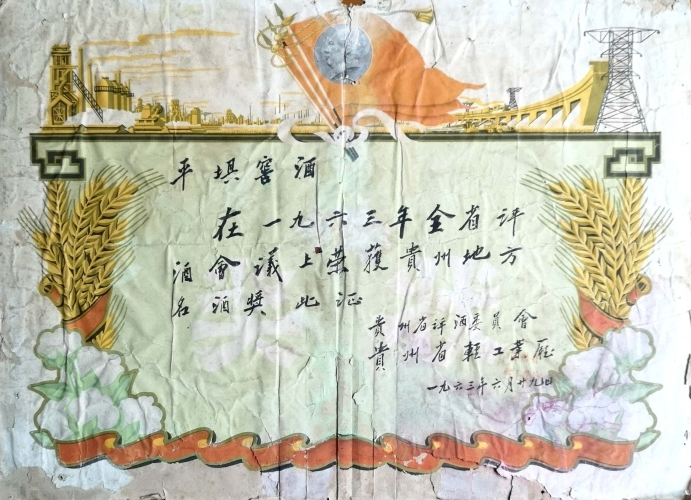 平埧窖酒
在一九六三年全省评
酒會議上荣獲貴州地方
名酒奖此证
贵州省评酒委员會
貴州省輕工業厅
一九六三年六月廿九日